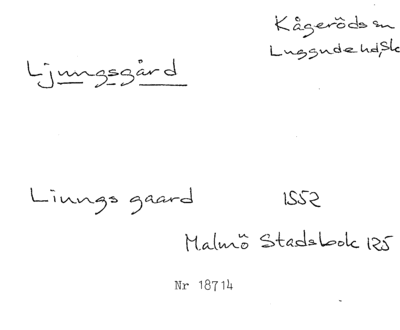 Kågeröds sn
Luggude hd, Sk
Ljungsgård
Liungs gaard 1552
Malmö Stadsbok 125
Nr 18714